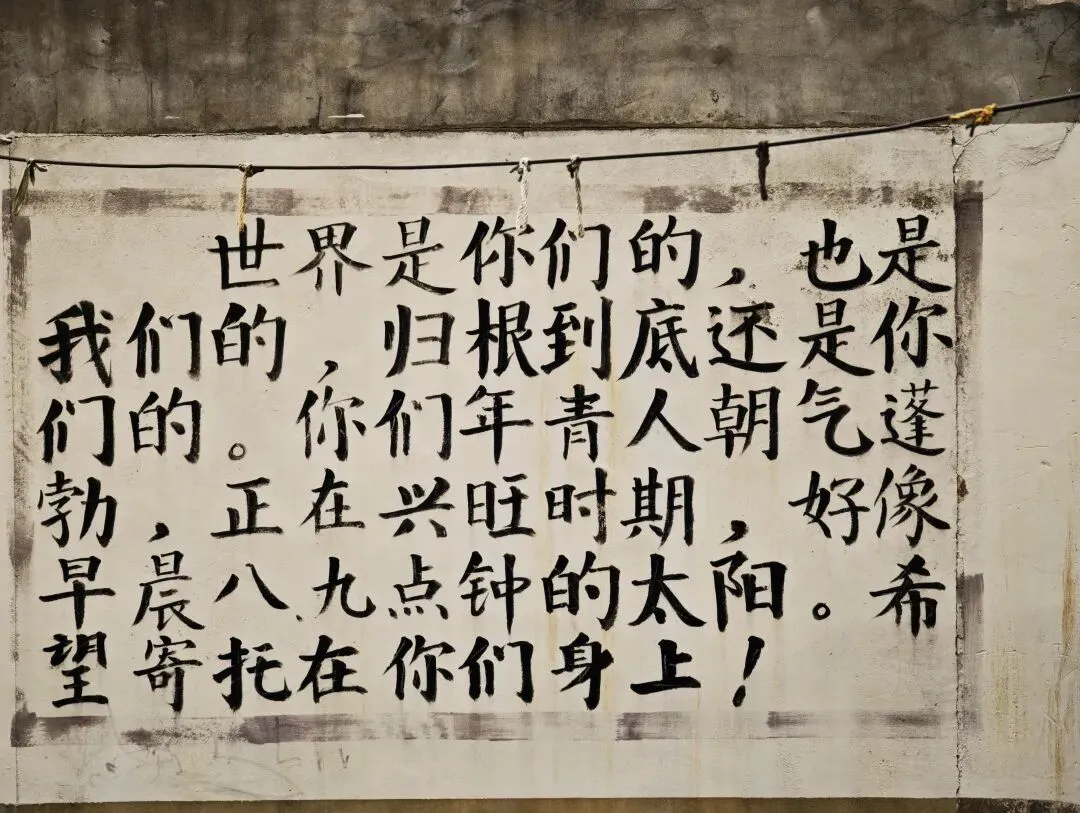 世界是你们的，也是
我们的，归根到底还是你
们的。你们年青人朝气蓬
勃，正在兴旺时期，好像
早晨八、九点钟的太阳。希
望寄托在你们身上！